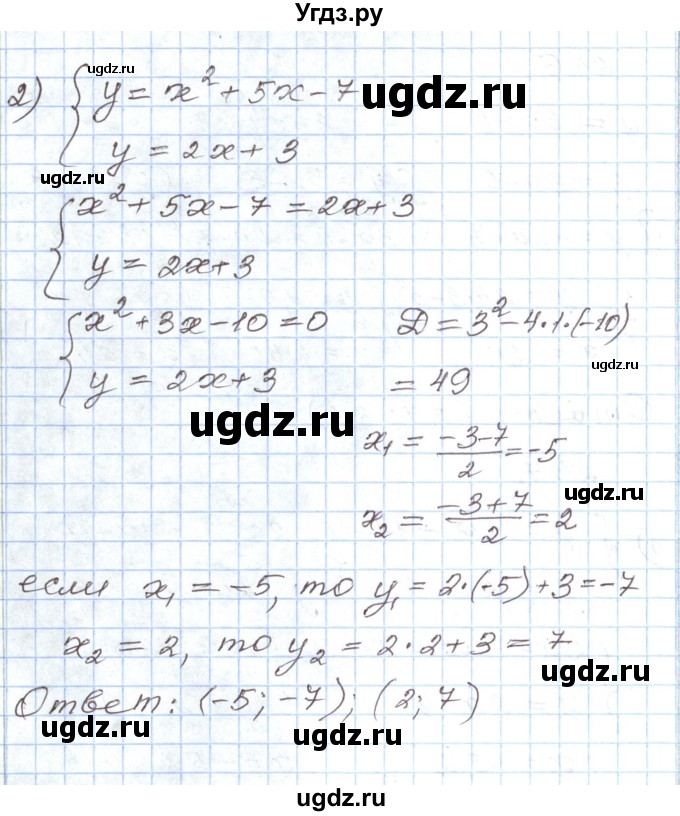 Угдз.ру
ugdz.ru
2) { y = x² + 5x - 7
ugdz.ru
y = 2x + 3
ugdz.ru
{ x² + 5x - 7 = 2x + 3
y = 2x + 3
{ x² + 3x - 10 = 0 D = 3² - 4·1·(-10)
ugdz.ru
y = 2x + 3 = 49
ugdz.ru
x₁ = (-3-7)/2 = -5
ugdz.ru
x₂ = (-3+7)/2 = 2
ugdz.ru
если x₁ = -5, то y₁ = 2·(-5) + 3 = -7
x₂ = 2, то y₂ = 2·2 + 3 = 7
ugdz.ru
Ответ: (-5; -7); (2; 7)
ugdz.ru
ugdz.ru
ugdz.ru